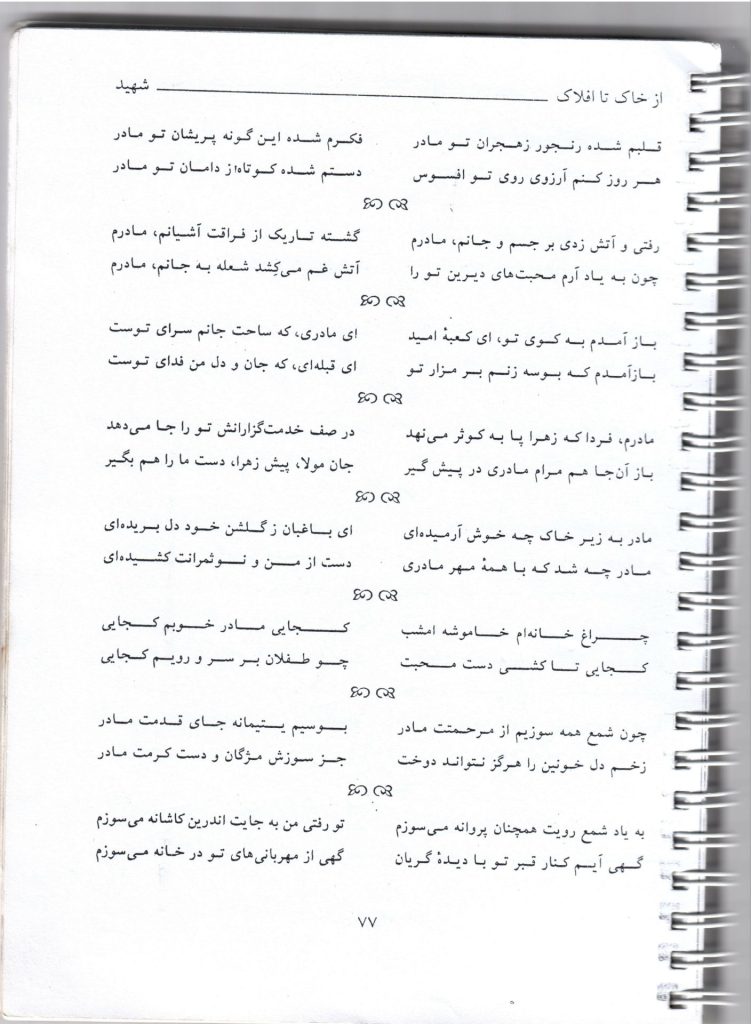 از خاک تا افلاک ــــــــــــــــــــ شهید
قلبم شده رنجور زهجران تو مادر    فکرم شده این گونه پریشان تو مادر
هر روز کنم آرزوی روی تو افسوس    دستم شده کوتاه از دامان تو مادر
رفتی و آتش زدی بر جسم و جانم، مادرم    گشته تاریک از فراقت آشیانم، مادرم
چون به یاد آرم محبت‌های دیرین تو را    آتش غم می‌کِشد شعله به جانم، مادرم
باز آمدم به کوی تو، ای کعبهٔ امید    ای مادری، که ساحت جانم سرای توست
بازآمدم که بوسه زنم بر مزار تو    ای قبله‌ای، که جان و دل من فدای توست
مادرم، فردا که زهرا پا به کوثر می‌نهد    در صف خدمت‌گزارانش تو را جا می‌دهد
باز آن‌جا هم مرام مادری در پیش گیر    جان مولا، پیش زهرا، دست ما را هم بگیر
مادر به زیر خاک چه خوش آرمیده‌ای    ای باغبان ز گلشن خود دل بریده‌ای
مادر چه شد که با همهٔ مهر مادری    دست از من و نوثمرانت کشیده‌ای
چراغ خانه‌ام خاموشه امشب    کجایی مادر خوبم کجایی
کجایی تا کشی دست محبت    چو طفلان بر سر و رویم کجایی
چون شمع همه سوزیم از مرحمتت مادر    بوسیم یتیمانه جای قدمت مادر
زخم دل خونین را هرگز نتواند دوخت    جز سوزش مژگان و دست کرمت مادر
به یاد شمع رویت همچنان پروانه می‌سوزم    تو رفتی من به جایت اندرین کاشانه می‌سوزم
گهی آیم کنار قبر تو با دیدهٔ گریان    گهی از مهربانی‌های تو در خانه می‌سوزم
۷۷